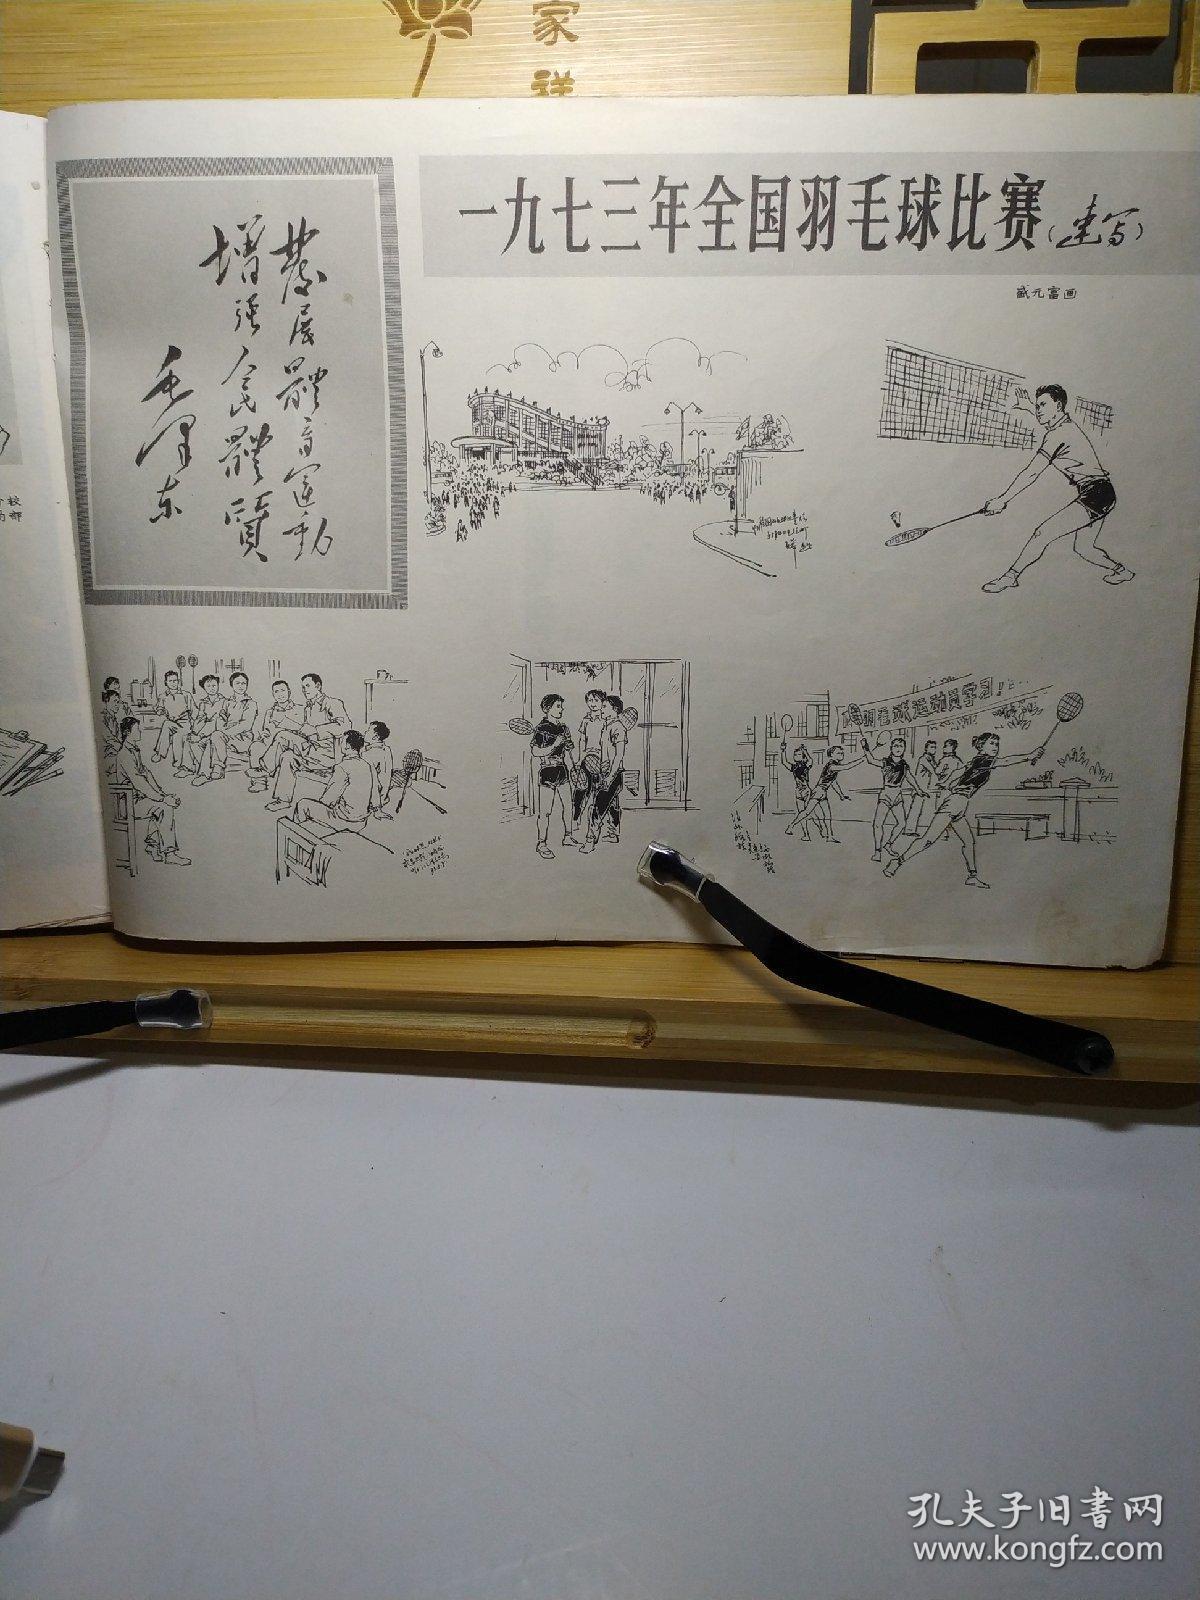 家
祥
一九七三年全国羽毛球比赛(速写)
盛元富画
發展體育运動
增强人民體質
毛泽东
向羽毛球运动员学习!
孔夫子旧书网
www.kongfz.com